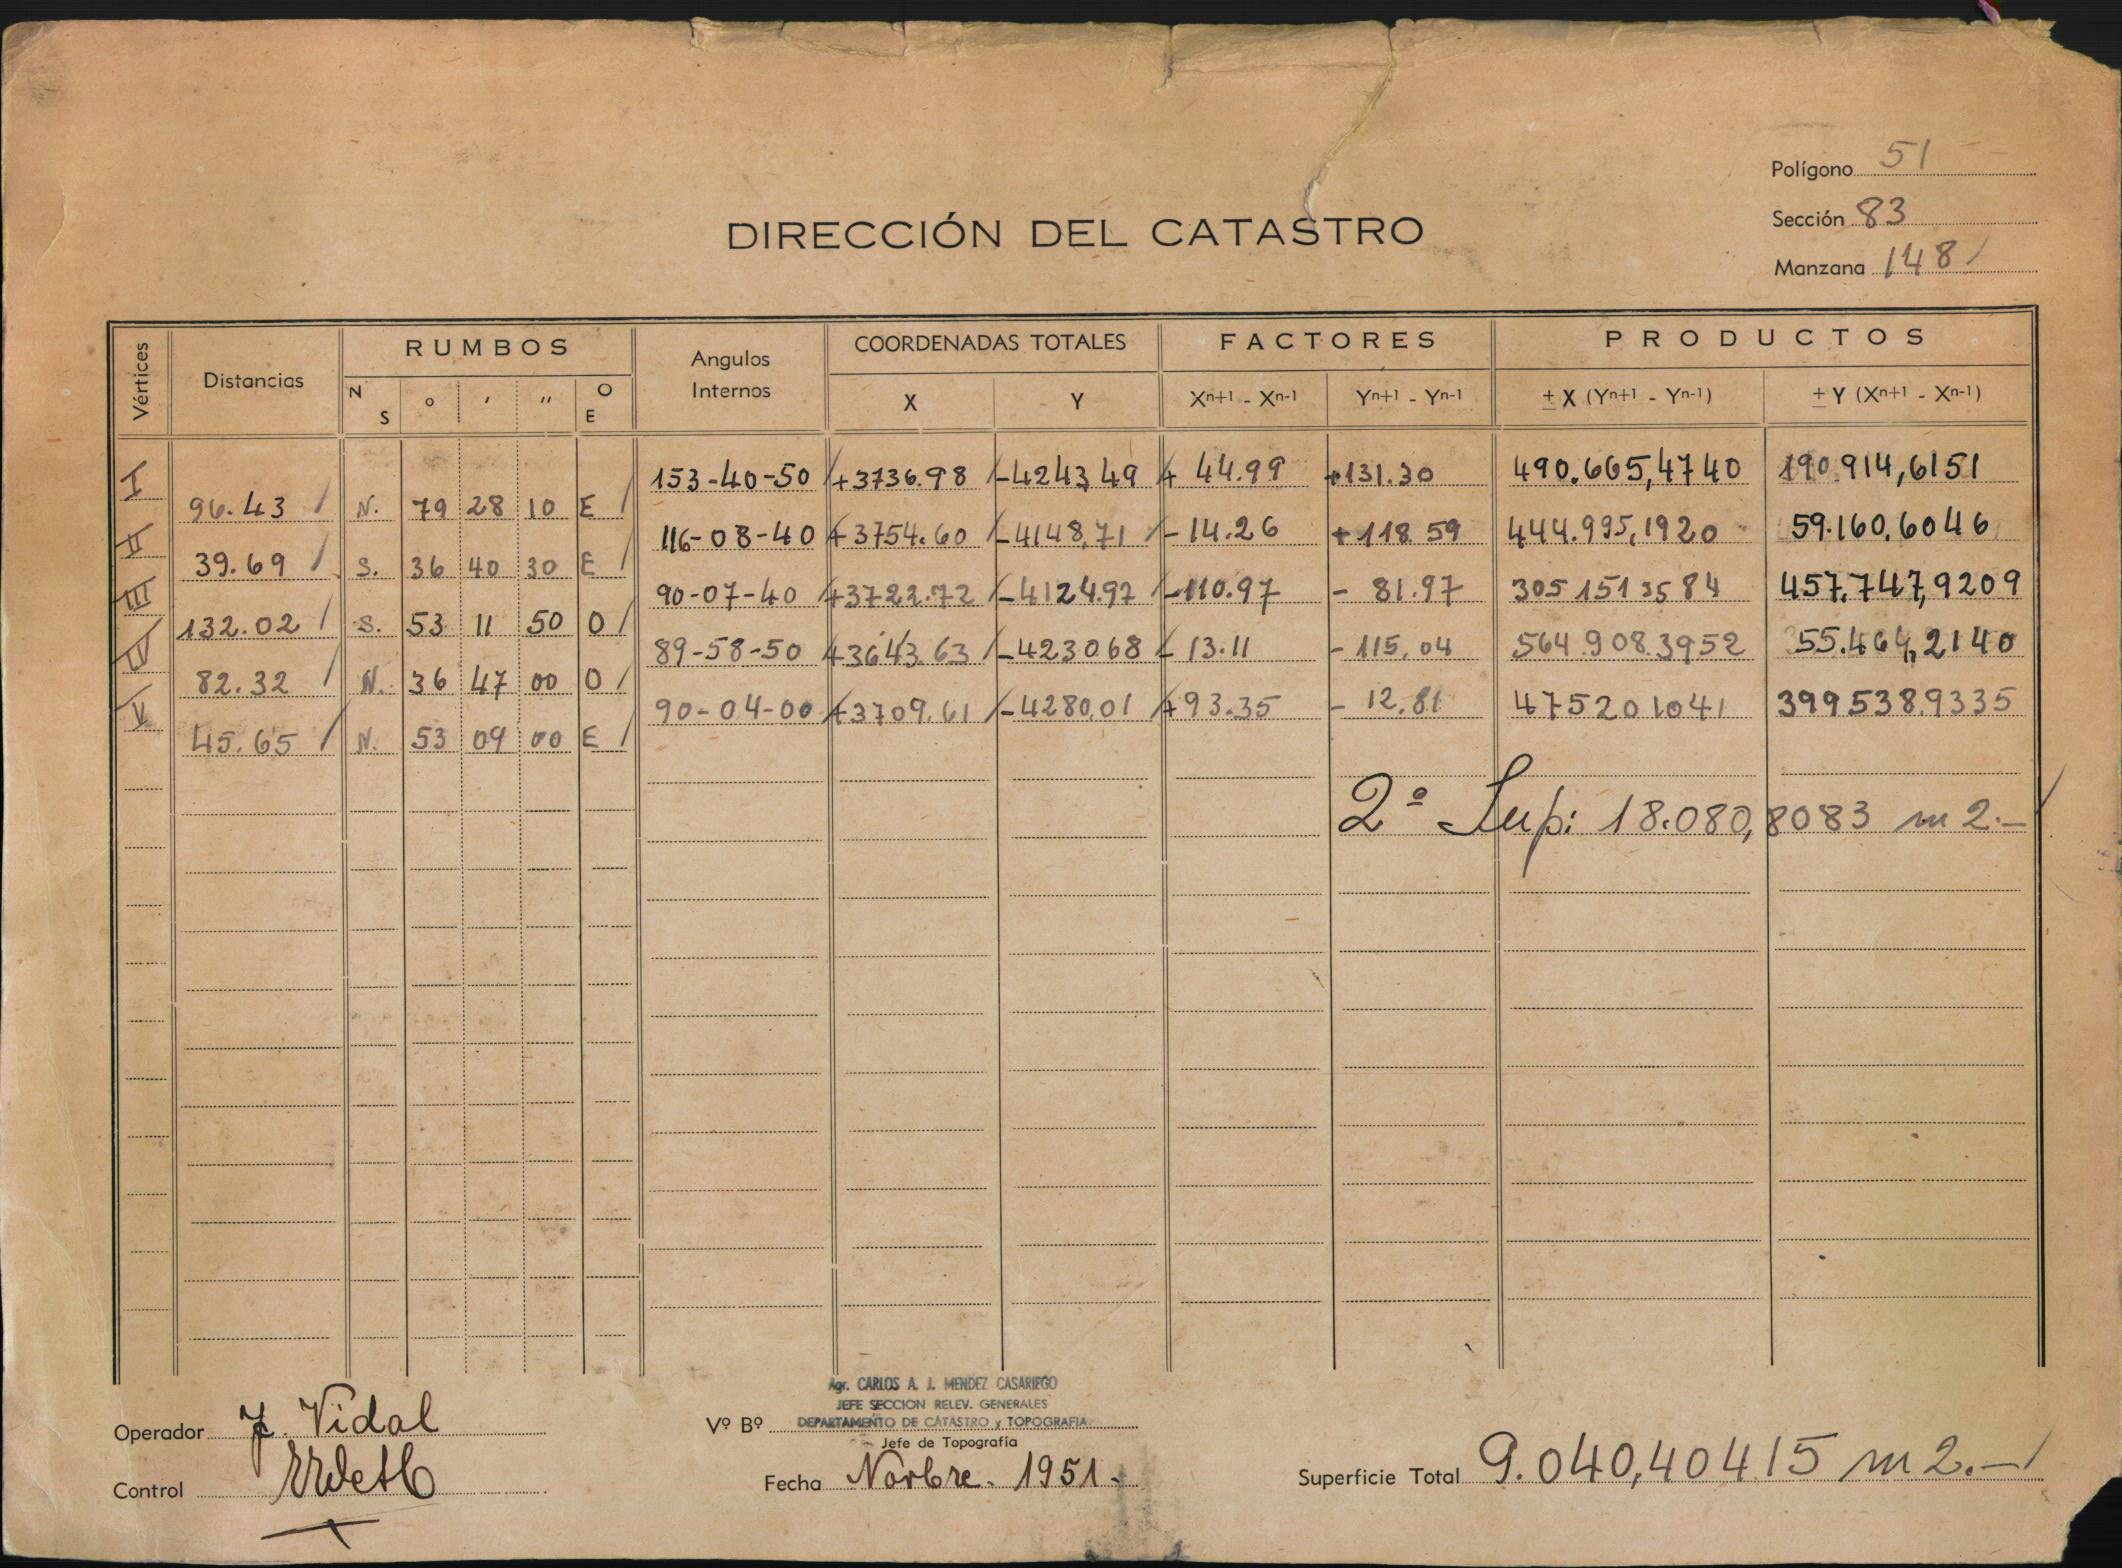 Polígono 51
Sección 83
Manzana 148
DIRECCIÓN DEL CATASTRO
Vértices Distancias RUMBOS Angulos Internos COORDENADAS TOTALES FACTORES PRODUCTOS
N S ° ' '' O E X Y Xn+1 - Xn-1 Yn+1 - Yn-1 ± X (Yn+1 - Yn-1) ± Y (Xn+1 - Xn-1)
I 153-40-50 +3736.98 -4243,49 + 44.99 +131.30 490.665,4740 190.914,6151
96.43 N. 79 28 10 E
II 116-08-40 +3754.60 -4148,71 -14.26 +118.59 444.995,1920 59.160,6046
39.69 S. 36 40 30 E
III 90-07-40 +3722.72 -4124.97 -110.97 - 81.97 305 151 3584 457.747,9209
132.02 S. 53 11 50 O
IV 89-58-50 +3643.63 -4230.68 - 13.11 -115,04 564.908.3952 55.464,2140
82.32 N. 36 47 00 O
V 90-04-00 +3709.61 -4280,01 +93.35 - 12.81 47520 1041 399538.9335
45.65 N. 53 09 00 E
2º Sup: 18.080,8083 m 2.-
Agr. CARLOS A. J. MENDEZ CASARIEGO
JEFE SECCION RELEV. GENERALES
Vº Bº DEPARTAMENTO DE CATASTRO y TOPOGRAFIA
Jefe de Topografía
Operador J. Vidal
Control
Fecha Novbre. 1951.-
Superficie Total 9.040,40415 m 2.-